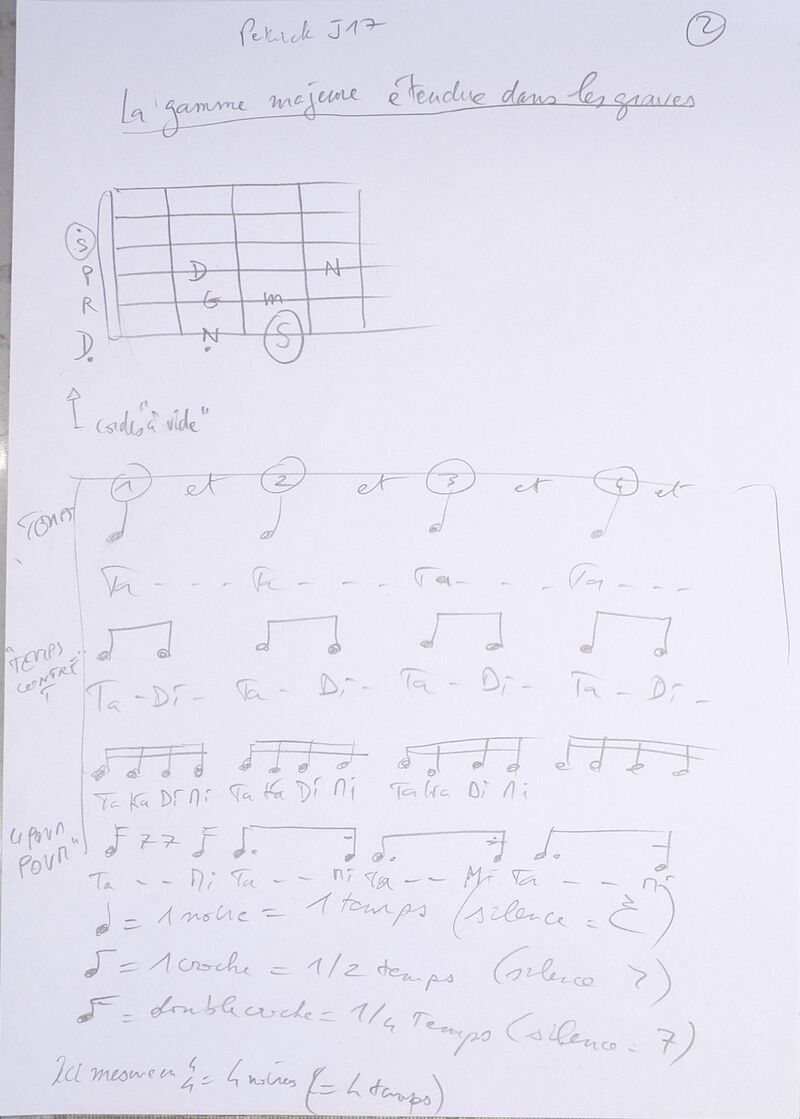 J17
2
La gamme majeure étendue dans les graves
S
P
R
D.
D N
G m
N S
cordes "à vide"
1 et 2 et 3 et 4 et
Ta - - - Ta - - - Ta - - - Ta - - -
"TEMPS
CONTRE
T
Ta - Di - Ta - Di - Ta - Di - Ta - Di -
Ta Ka Di Ni Ta Ka Di Ni Ta Ka Di Ni
POUM
POUM"
Ta - - Ni Ta - - - Ni Ta - - Ni Ta - - - Ni
= 1 noire = 1 temps (silence = )
= 1 croche = 1/2 temps (silence 7)
= double croche = 1/4 Temps (silence = 7)
Ici mesure en 4/4 = 4 noires (= 4 temps)